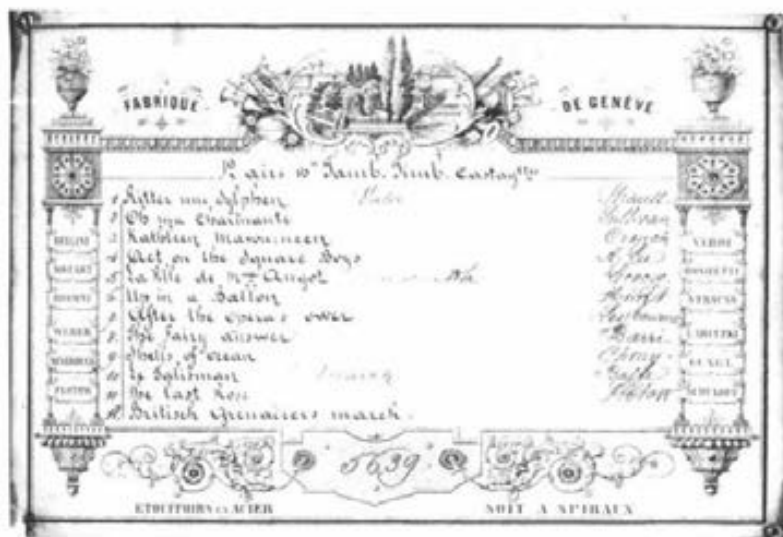 FABRIQUE DE GENÈVE
12 airs Tamb. Timb. Castag
1 Ritter
2 Oh ma Charmante Sullivan
3 Kathleen Mavourneen
4 Act on the Square Boys
5 La fille de Mme Angot
6 Up in a Ballon
After the Opera's over
8 The Fairy answer Barri
9 Shells of ocean Cherry
10 Le Talisman
11 The last Rose Flotow
12 British Grenairers march
BELLINI
MOZART
ROSSINI
WEBER
FLOTOW
VERDI
DONIZETTI
STRAUSS
LABITZKI
GUNGL
SCHUBERT
5639
ETOUFFOIRS EN ACIER
SOIT A SPIRAUX